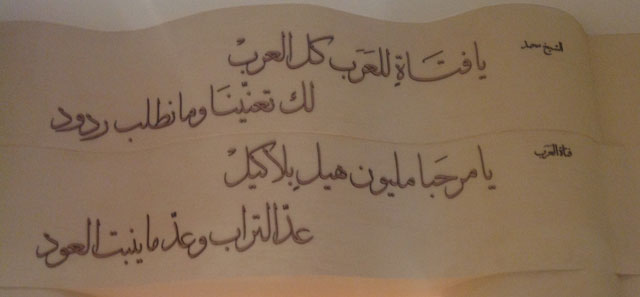 الشيخ محمد
يا فتَاةِ للعَرَب كل العربْ
لك تعنّينَا وما نطلب ردود
فتاة العرب
يا مرحَبا مليون هيلٍ بلا كيلْ
عدّ التراب وعدّ ما ينبت العود